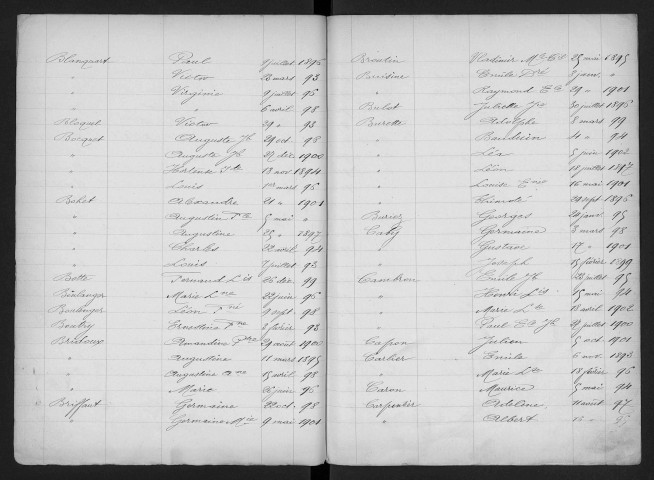 Blanquart Paul 1 juillet 1895
" Victor 23 mars 93
" Virginie 9 juillet 95
" " 6 avril 98
Victor 29 " 93
Bocquet Auguste Jh 29 oct 98
" Auguste Jh 27 déc 1900
" Hortense 13 nov 1894
" Louis 1er mars 96
Bohet Alexandre 21 " 1901
" Augustin 5 mai "
" Augustine 25 " 1897
" Charles 22 avril 94
" Louis 7 juillet 93
Botte Fernand Lis 26 déc 99
Boulanger Marie Lne 22 juin 96
Boulanger Léon 9 sept 98
Boutry Ernestine 2 février 93
Amandine 29 août 1900
" Augustine 11 mars 1895
" Augustine 15 avril 98
" Marie 26 juin 96
Briffaut Germaine 22 oct 98
" Germaine 9 mai 1901
Vladimir 25 mai 1895
Emile Dré 3 janv "
" Raymond 29 " 1901
Juliette 30 juillet 1896
Burette Adolphe 8 mars 99
" Baudoin 4 " 94
" Léa 5 juin 1902
" Léon 18 juillet 1897
" Louise 16 mai 1901
" 20 sept 1896
Georges 20 janv 95
Caby Germaine 8 mars 98
" Gustave 17 " 1901
" Joseph 15 février 1899
Cambron Emile Jh 22 juillet 95
" Henri Lis 15 mai 94
" Marie Lse 13 avril 1902
" Paul 21 juillet 1900
Capon Julien 5 oct 1901
Carlier Emile 6 nov 1893
" Marie 18 février 96
Caron Maurice 5 mai 94
Carpentier Adeline 11 août 97
" Albert